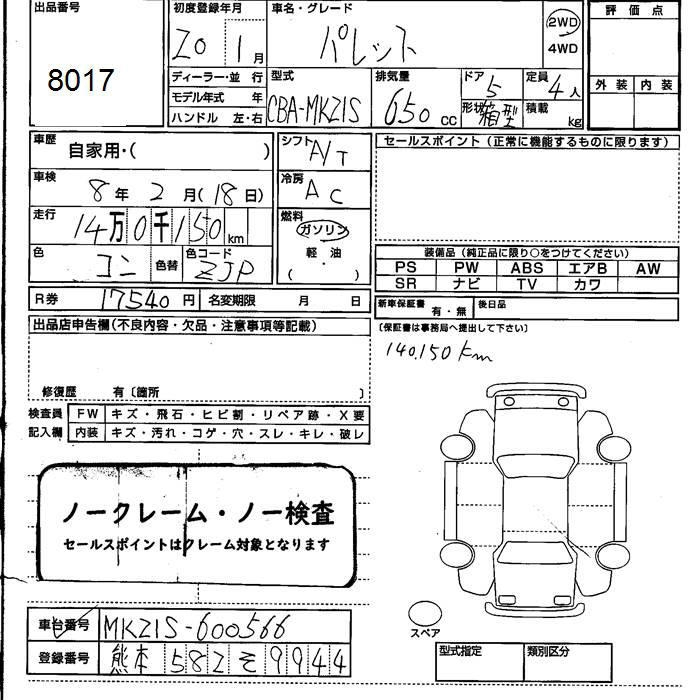 出品番号
8017
初度登録年月
20 1月
車名・グレード
パレット
2WD
4WD
評価点
外装 内装
ディーラー・並 行
モデル年式 年
ハンドル 左・右
型式
CBA-MK21S
排気量
650 cc
ドア
5
形状
箱型
定員
4人
積載
kg
車歴
自家用・( )
車検
8年 2月(18日)
走行
14万0千150km
色
コン
色替
色コード
ZJP
R券 17540円
名変期限 月 日
シフト
A/T
冷房
AC
燃料
ガソリン
軽油
( ・ )
セールスポイント(正常に機能するものに限ります)
装備品(純正品に限り○をつけてください)
PS PW ABS エアB AW
SR ナビ TV カワ
新車保証書
有・無
後日品
〔保証書は事務局へ提出して下さい〕
140,150km
出品店申告欄(不良内容・欠品・注意事項等記載)
修復歴 有〔箇所 〕
検査員
記入欄
FW キズ・飛石・ヒビ割・リペア跡・X要
内装 キズ・汚れ・コゲ・穴・スレ・キレ・破レ
ノークレーム・ノー検査
セールスポイントはクレーム対象となります
車台番号 MK21S-600566
登録番号 熊本582そ9944
スペア
型式指定
類別区分